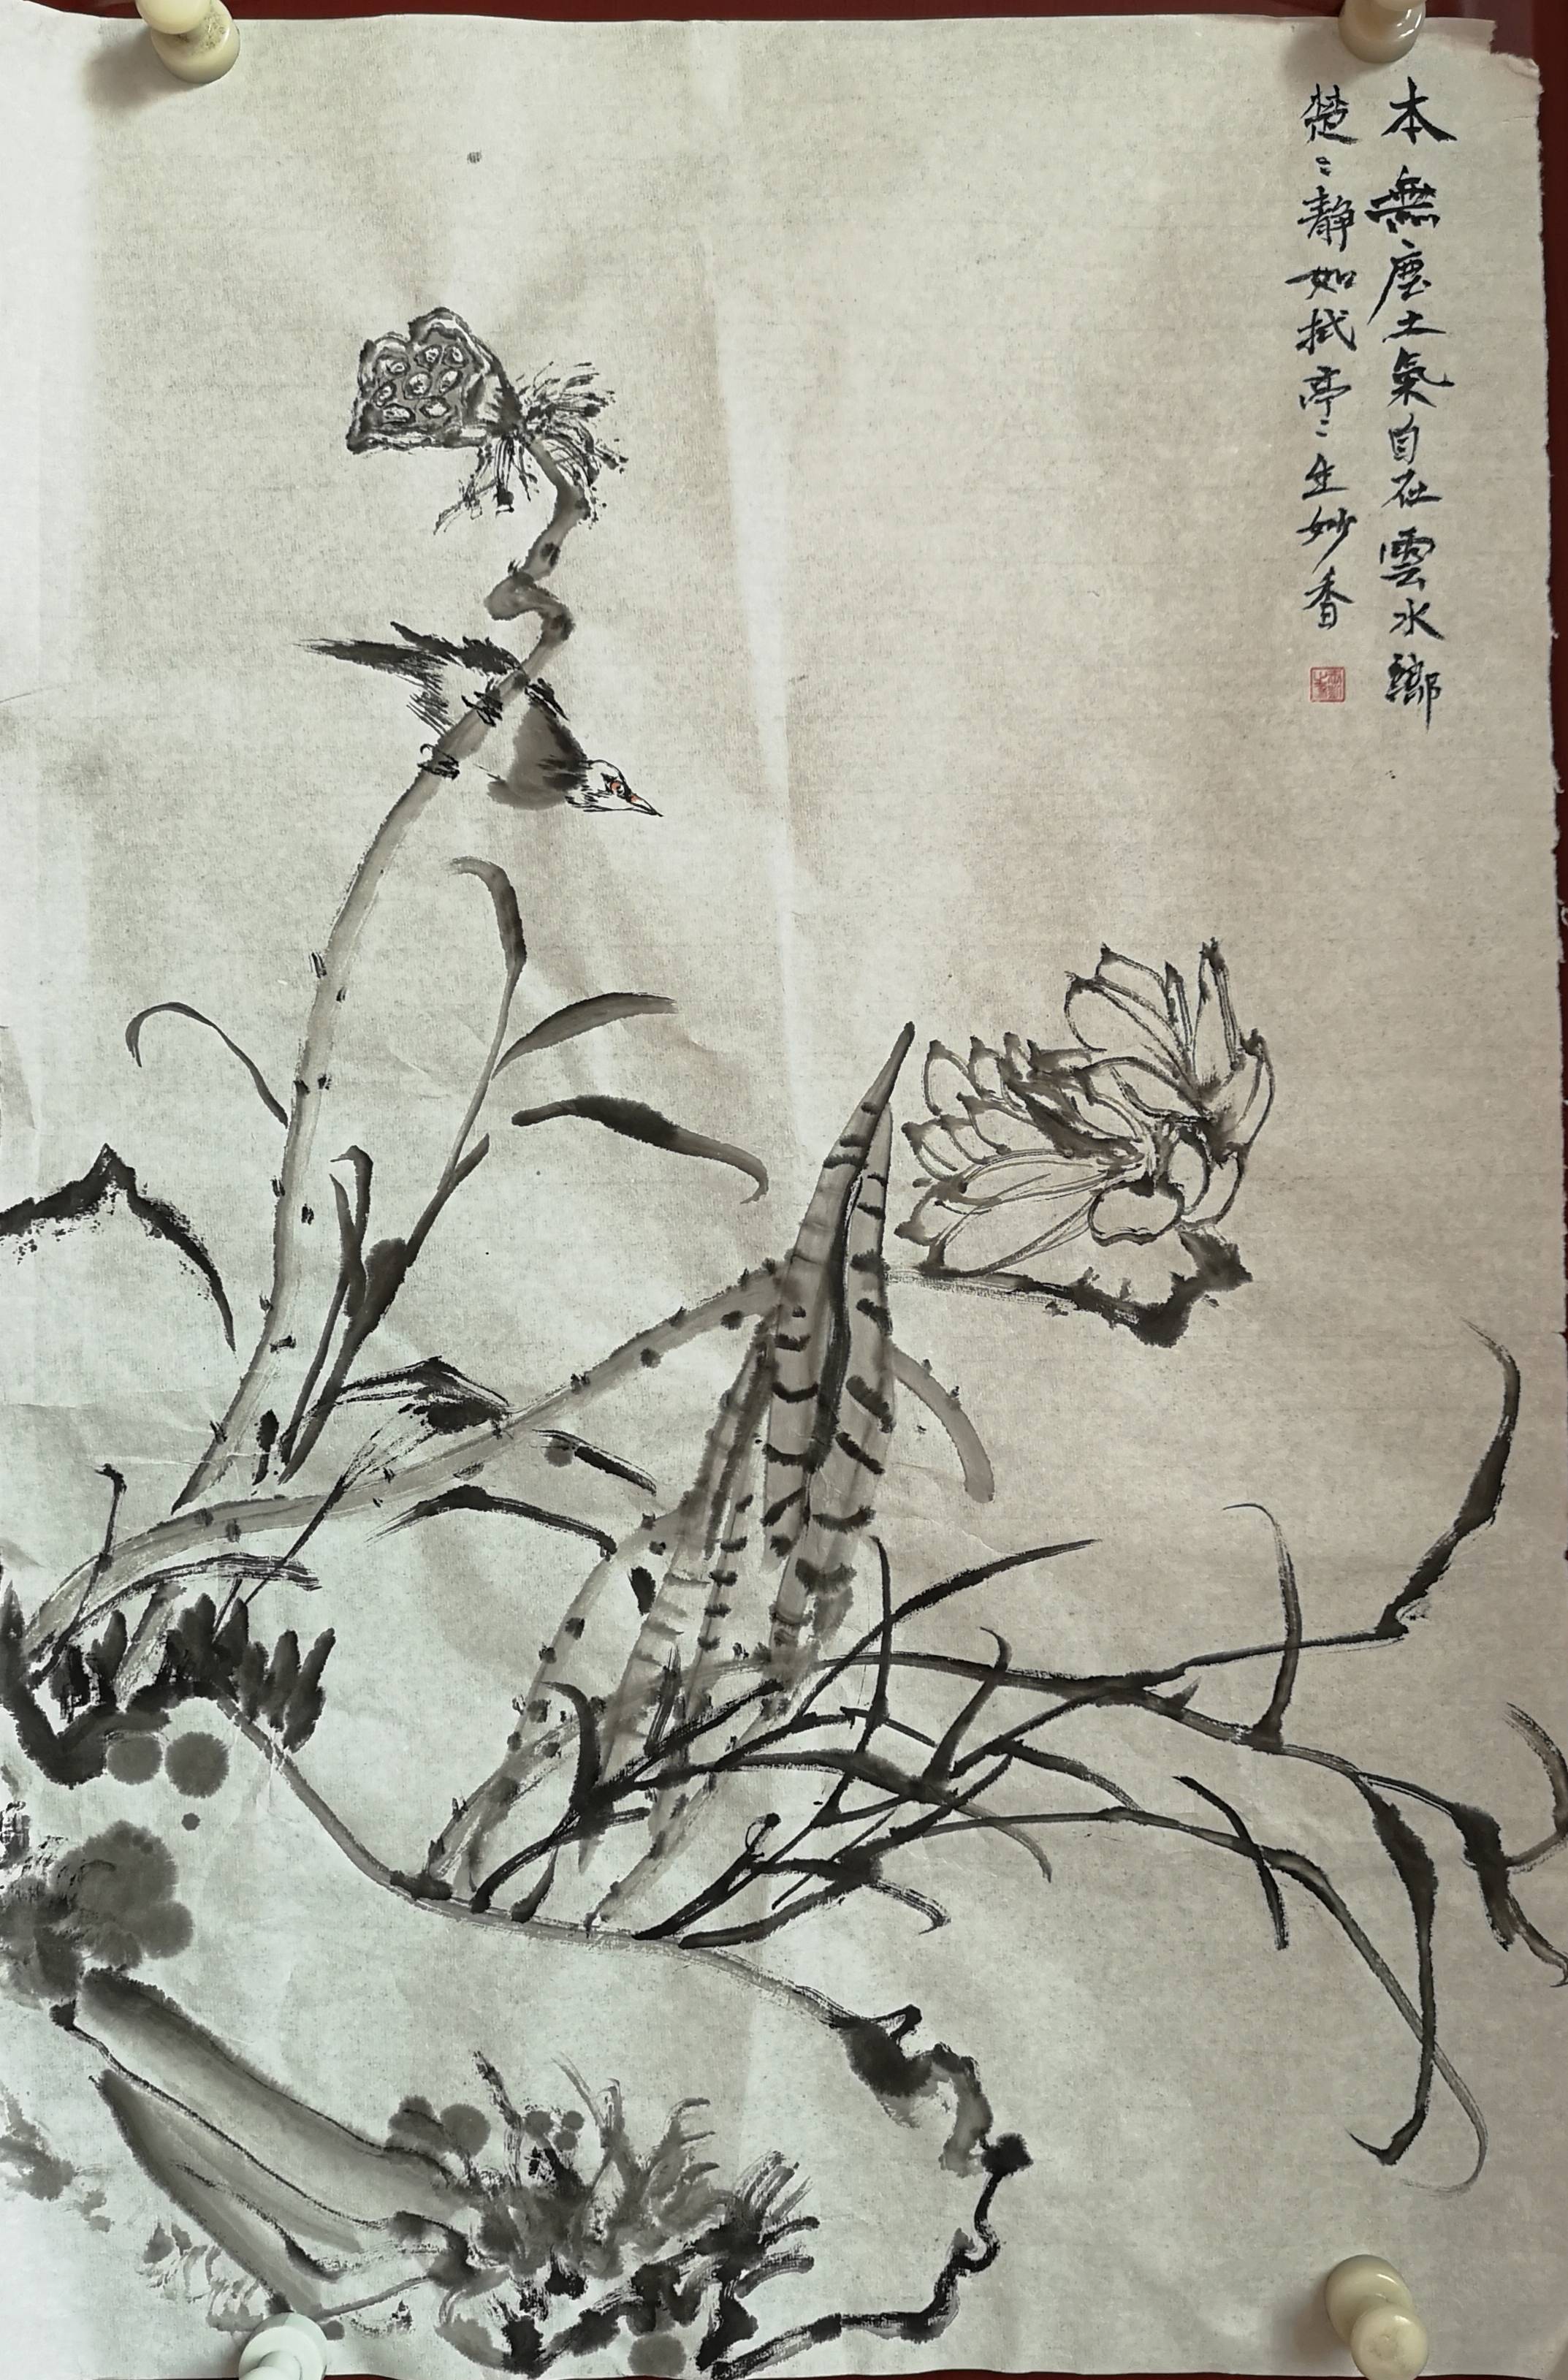 本無塵土氣自在雲水鄉
楚〻靜如拭亭〻生妙香